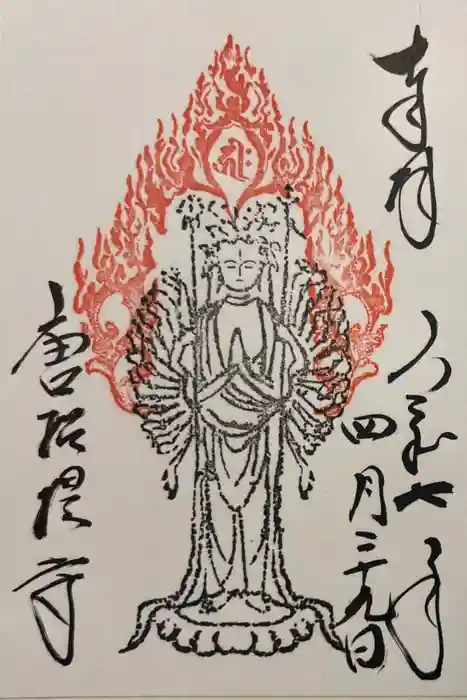 奉拝
令和七年
四月二十九日
唐招提寺